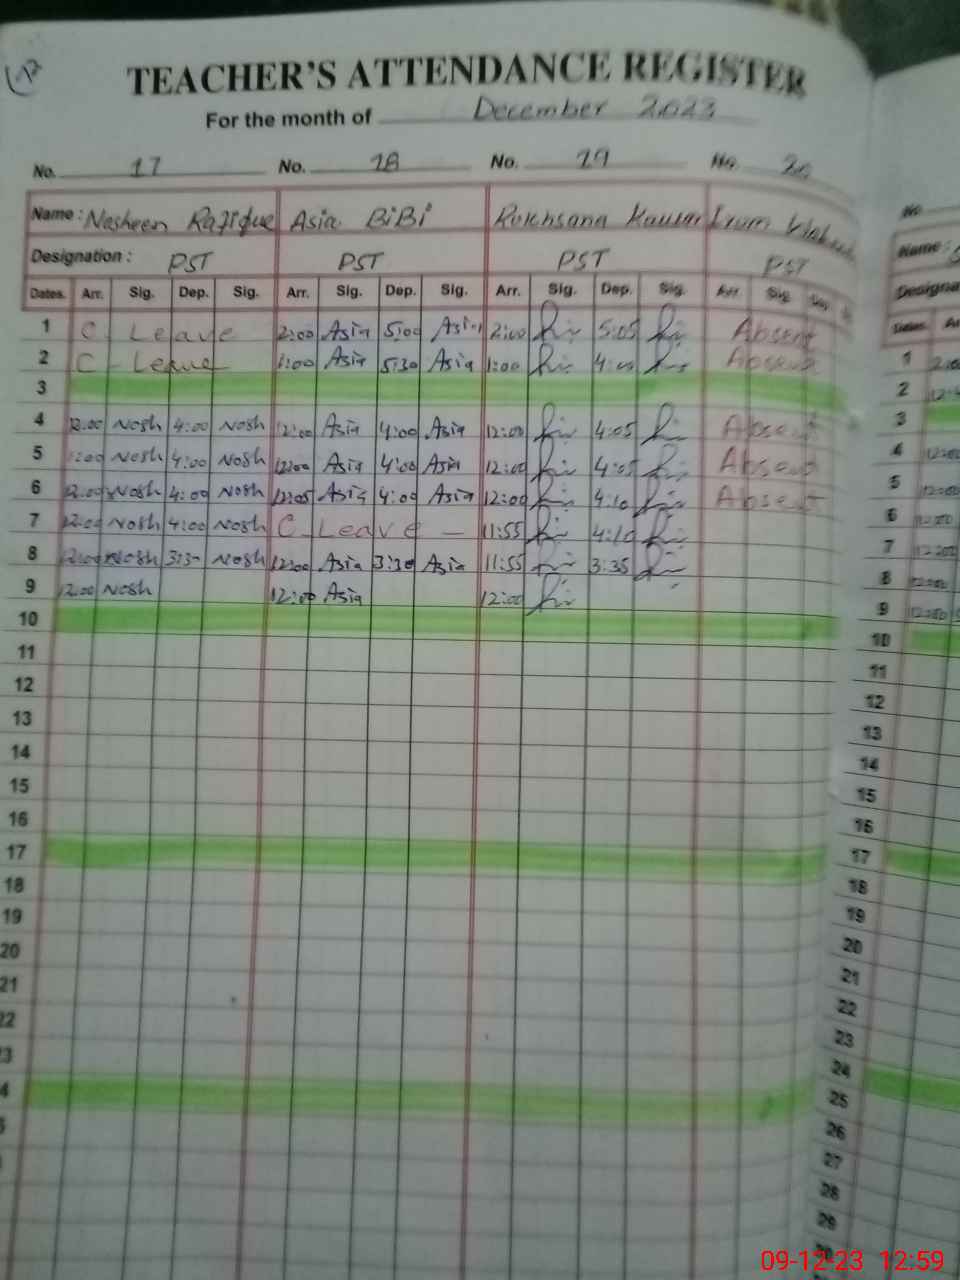 TEACHER'S ATTENDANCE REGISTER
For the month of December 2023
No. 17 No. 18 No. 19 No. 20
Name : Nosheen Rafique Asia BiBi Rukhsana Kausar Irum
Designation : PST PST PST PST
Dates. Arr. Sig. Dep. Sig. Arr. Sig. Dep. Sig. Arr. Sig. Dep. Sig. Arr Sig
1 C - Leave 2:00 Asia 5:00 Asia 2:00 5:05 Absent
2 C - Leave 1:00 Asia 5:30 Asia 1:00 4:00 Absent
3
4 12:00 Nosh 4:00 Nosh 12:00 Asia 4:00 Asia 12:00 4:05 Absent
5 Nosh 4:00 Nosh 12:00 Asia 4:00 Asia 12:00 4:05 Absent
6 12:00 Nosh 4:00 Nosh 12:05 Asia 4:00 Asia 12:00 4:10 Absent
7 12:00 Nosh 4:00 Nosh C - Leave - 11:55 4:10
8 12:00 Nosh 3:30 Nosh 12:00 Asia 3:30 Asia 11:55 3:35
9 12:00 Nosh 12:00 Asia 12:00
10
11
12
13
14
15
16
17
18
19
20
21
22
23
4
No
Name :
Designa
Dates
1 2:00
2
3
4 12:00
5 12:00
6 12:00
7 12:00
8 12:00
9 12:00
10
11
12
13
14
15
16
17
18
19
20
21
22
23
24
25
26
27
28
29
30
09-12-23 12:59